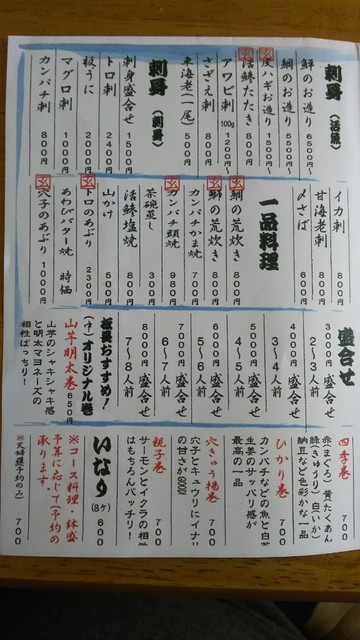 刺身（活魚）
鮃のお造り 6500円〜
鯛のお造り 6500円〜
玄 皮ハギお造り 1500円〜
玄 活鯵たたき 800円
アワビ刺 100g 1200円〜
さざえ刺 800円
車海老（一尾） 500円
刺身（刺身）
刺身盛合せ 1500円
トロ刺 2400円
板うに 2000円
マグロ刺 1000円
カンパチ刺 800円
イカ刺 800円
甘海老刺 700円
〆さば 600円
一品料理
玄 鯛の荒炊き 800円
玄 鰤の荒炊き 800円
カンパチかま焼 700円
玄 カンパチ頭焼 980円
茶碗蒸し 300円
活鯵塩焼 800円
山かけ 500円
玄 トロのあぶり 2300円
あわびバター焼 時価
玄 穴子のあぶり 1000円
盛合せ
3000円 盛合せ 2〜3人前
4000円 盛合せ 3〜4人前
5000円 盛合せ 4〜5人前
6000円 盛合せ 5〜6人前
7000円 盛合せ 6〜7人前
8000円 盛合せ 7〜8人前
板長おすすめ！
（中）オリジナル巻
山芋明太巻 650円
山芋のシャキシャキ感
と明太マヨネーズの
相性ばっちり！
四季巻 700
赤（まぐろ）黄（たくあん
緑（きゅうり）白（いか）
納豆など色彩かな一品
ひかり巻 700
カンパチなどの魚と白菜
生姜のサッパリ感が
最高の一品
穴きゅう揚巻 700
穴子とキュウリにイナリ
の甘さがGOOD
親子巻 700
サーモンとイクラの相性
はもちろんバッチリ！
いなり（8ケ） 600
※コース料理・鉢盛
予算に応じて（予約の
承ります。
※天婦羅（予約のみ） 700